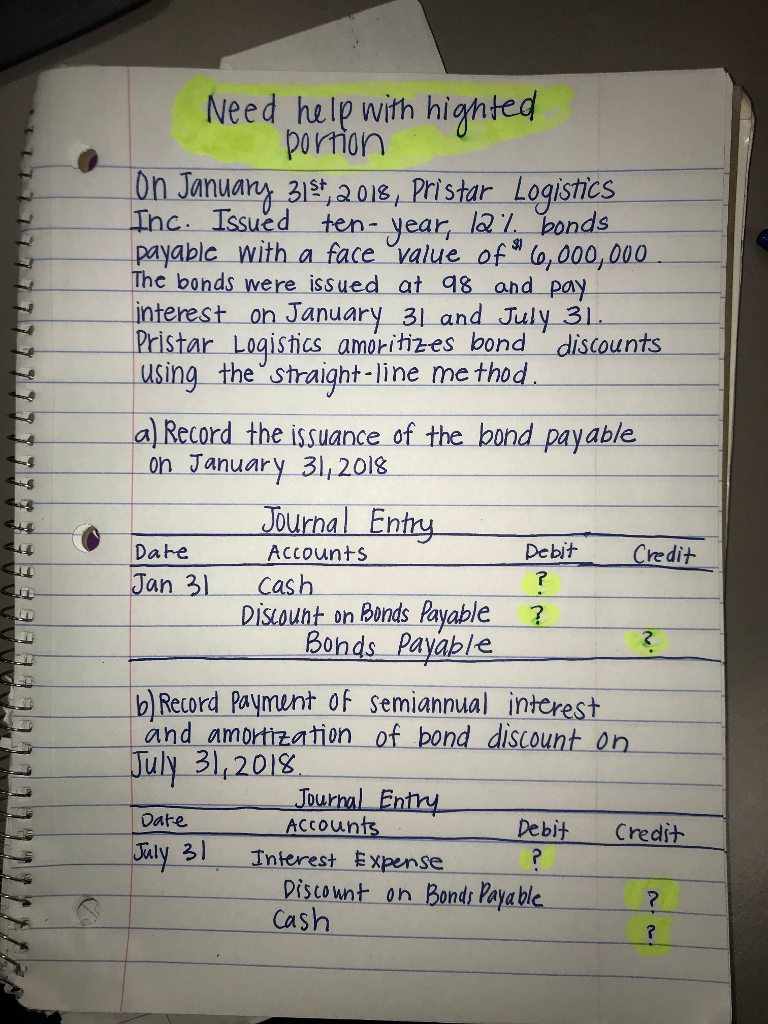 Need help with highted
portion
On January 31st, 2018, Pristar Logistics
Inc. Issued ten-year, 12% bonds
payable with a face value of $6,000,000.
The bonds were issued at 98 and pay
interest on January 31 and July 31.
Pristar Logistics amoritizes bond discounts
using the straight-line method.
a) Record the issuance of the bond payable
on January 31, 2018
Journal Entry
Date Accounts Debit Credit
Jan 31 Cash ?
Discount on Bonds Payable ?
Bonds Payable ?
b) Record Payment of semiannual interest
and amortization of bond discount on
July 31, 2018.
Journal Entry
Date Accounts Debit Credit
July 31 Interest Expense ?
Discount on Bonds Payable ?
Cash ?